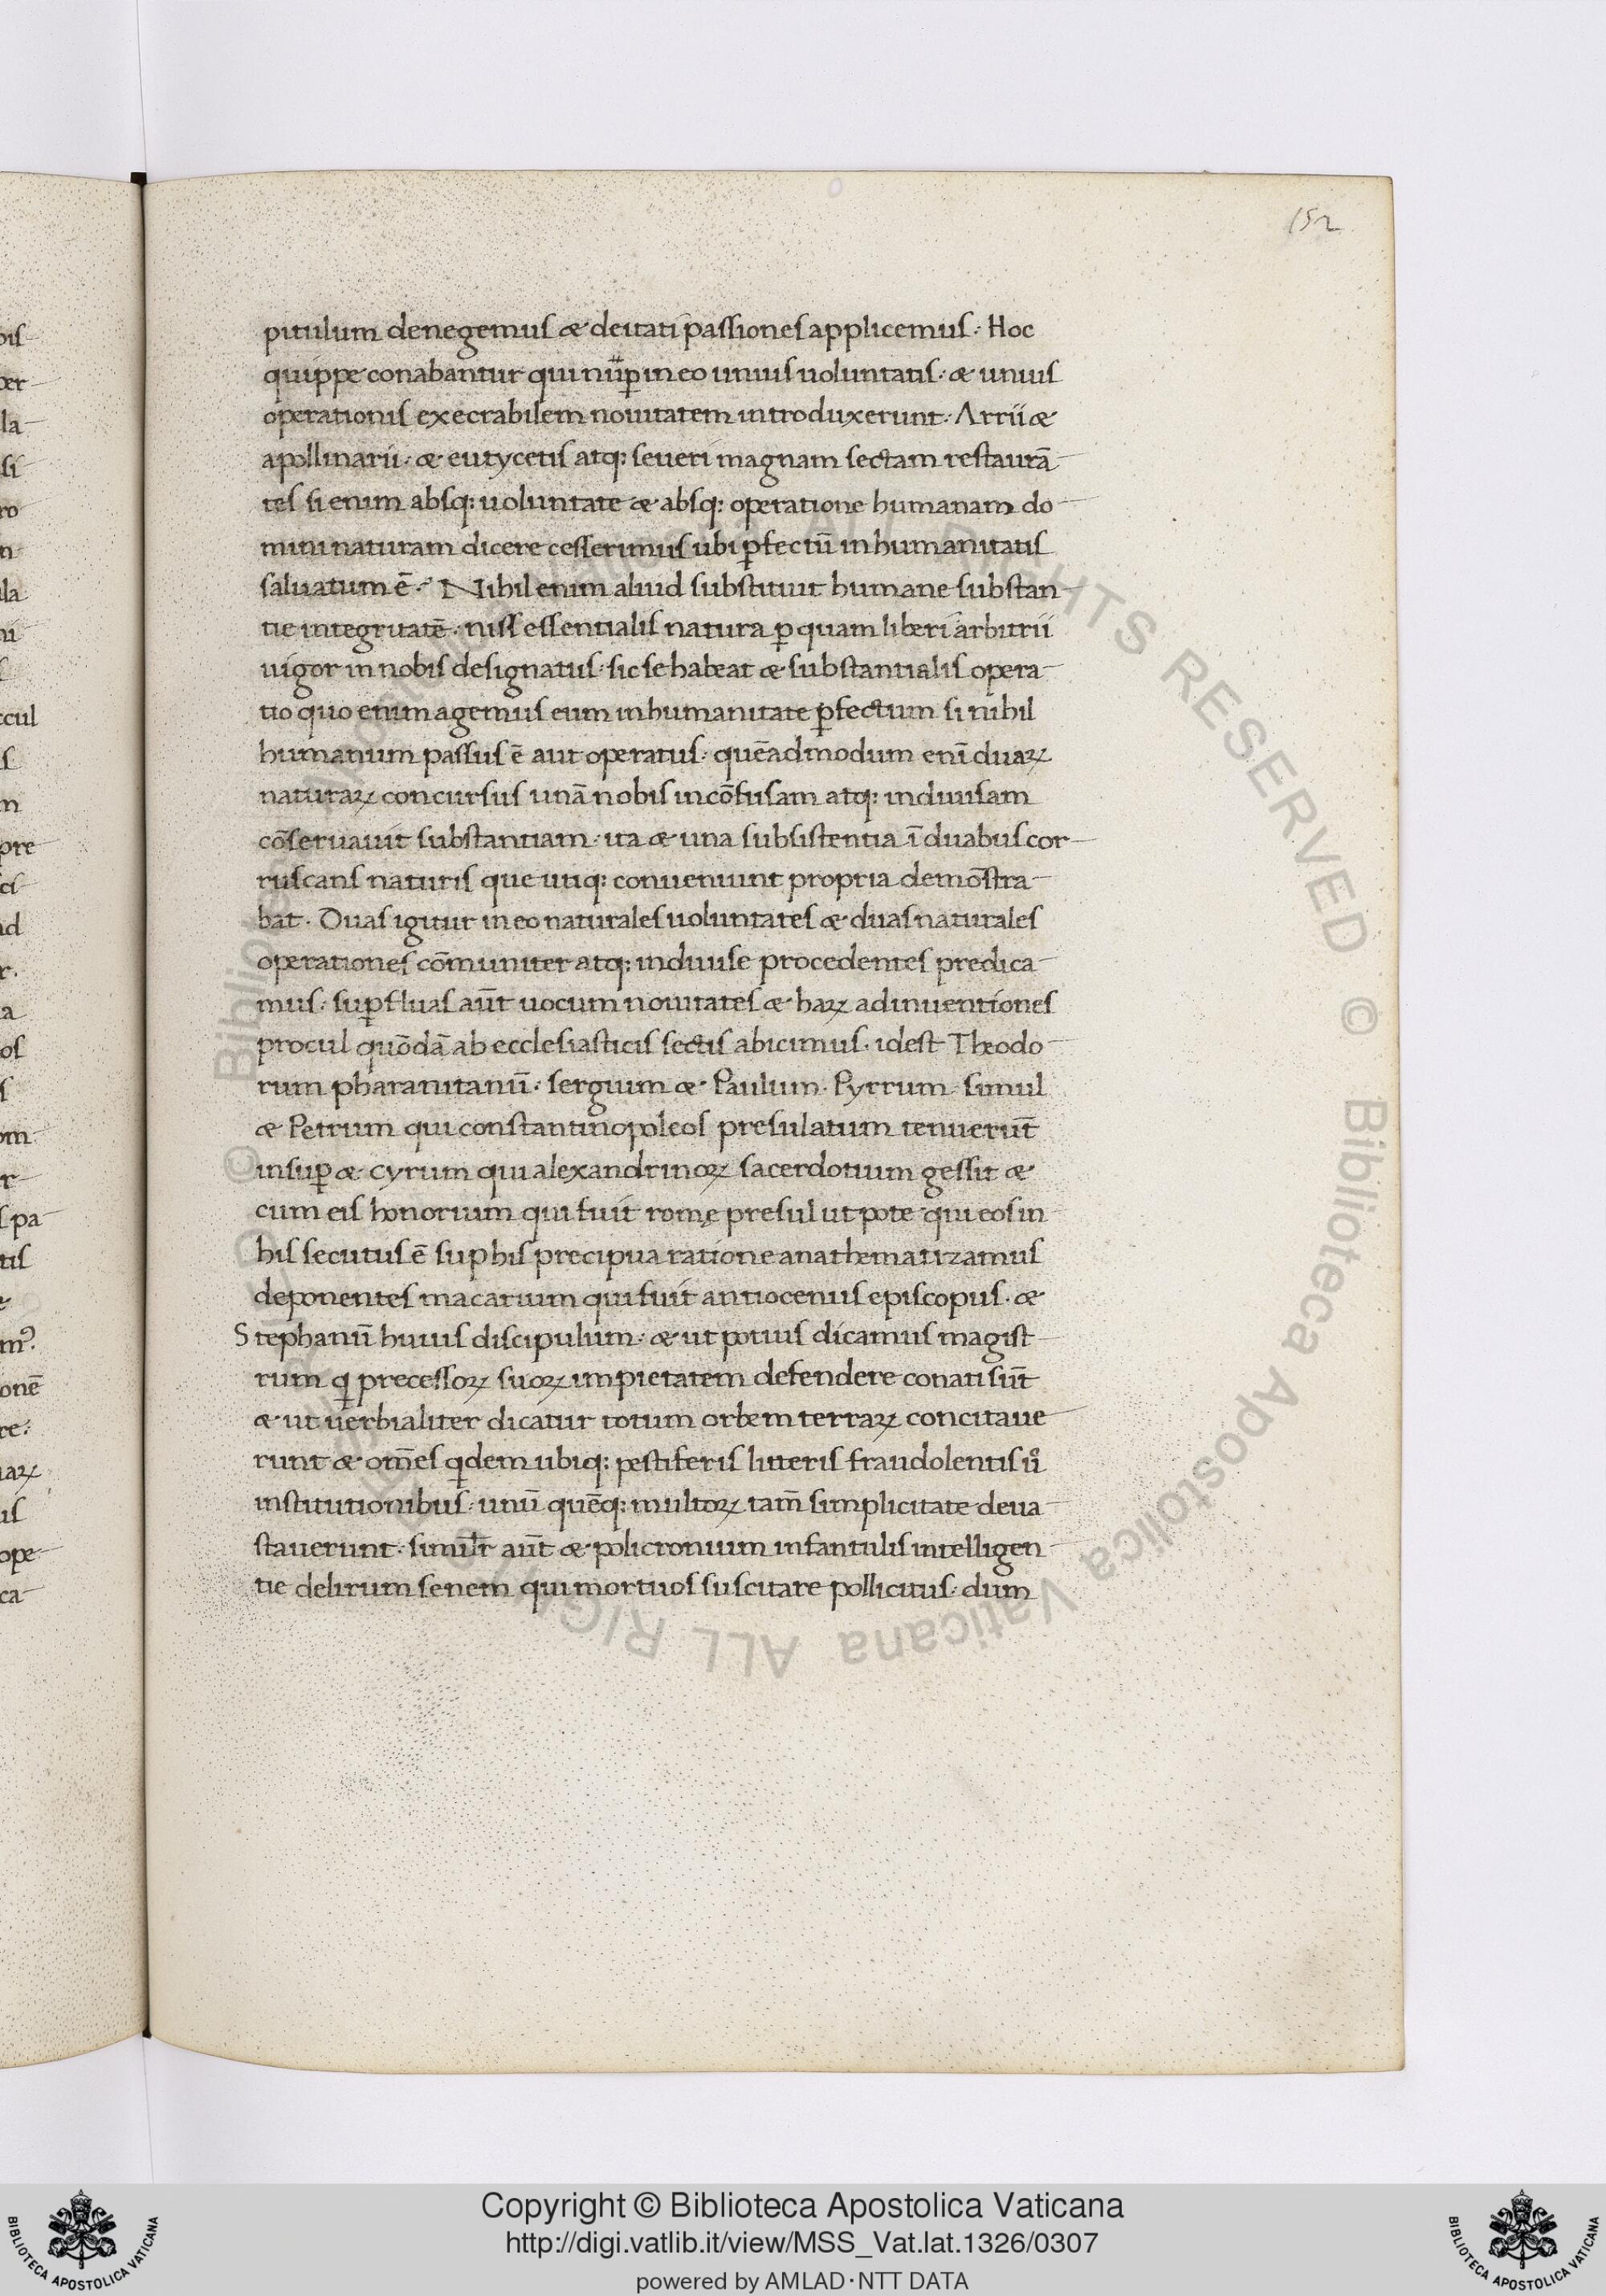 152
pitulum denegemus & deitati passiones applicemus · Hoc
quippe conabantur qui nup̱ in eo unius uoluntatis · & unius
operationis execrabilem nouitatem introduxerunt · Arrii &
apollinarii · & eutycetis atq: seueri magnam sectam restaurā
tes si enim absq: uoluntate & absq: operatione humanam do
mini naturam dicere cesserimus ubi p̱fectū inhumanitatis
saluatum ē · Nihil enim aliud substituit humane substan
tie integritatē · nisi essentialis natura p̱ quam liberi arbitrii
uigor in nobis designatus · sic se habeat & substantialis opera
tio quo enim agemus eum inhumanitate p̱fectum si nihil
humanum passus ē aut operatus · quēadmodum enī duaꝝ
naturaꝝ concursus unā nobis incōfusam atq: indiuisam
cōseruauit substantiam · ita & una subsistentia ī duabus cor
ruscans naturis que utiq: conueniunt propria demōstra
bat · Duas igitur in eo naturales uoluntates & duas naturales
operationes cōmuniter atq: indiuise procedentes predica
mus · sup̱fluas aūt uocum nouitates & haꝝ adinuentiones
procul quōdā ab ecclesiasticis sectis abicimus · idest Theodo
rum pharanitanū · sergium & Paulum · Pyrrum · simul
& Petrum qui constantinopoleos presulatum tenuerūt
insup̱ & cyrum qui alexandrinoꝝ sacerdotium gessit &
cum eis honorium qui fuit romę presul ut pote qui eos in
his secutus ē sup his precipua ratione anathematizamus
deponentes macarium qui fuit antiocenus episcopus · &
Stephanū huius discipulum · & ut potius dicamus magist
rum q precessoꝝ suoꝝ impietatem defendere conati sūt
& ut uerbialiter dicatur totum orbem terraꝝ concitaue
runt & om̄es qdem ubiq: pestiferis litteris fraudolentis ū
institutionibus · unū quēq: multoꝝ tam̄ simplicitate deua
stauerunt · simil̄r aūt & policronium infantulis intelligen
tie delirum senem qui mortuos suscitare pollicitus · dum
Copyright © Biblioteca Apostolica Vaticana
http://digi.vatlib.it/view/MSS_Vat.lat.1326/0307
powered by AMLAD·NTT DATA
© Biblioteca Apostolica Vaticana ALL RIGHTS RESERVED
BIBLIOTECA APOSTOLICA VATICANA
BIBLIOTECA APOSTOLICA VATICANA